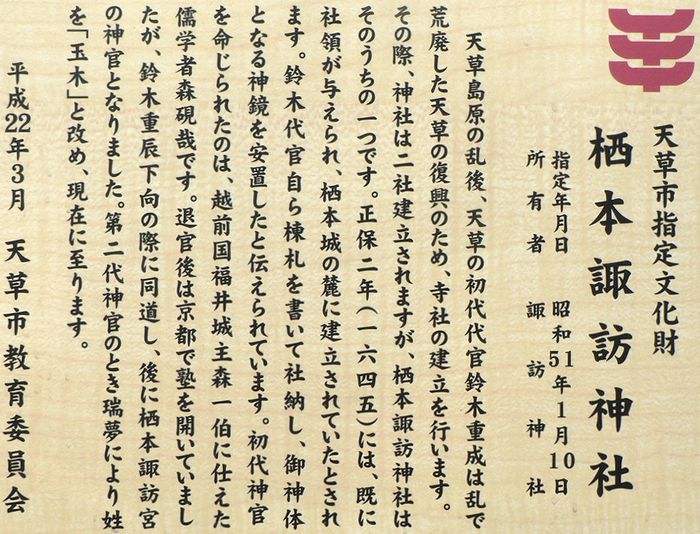 天草市指定文化財
栖本諏訪神社
指定年月日　昭和51年1月10日
所有者　諏訪神社
天草島原の乱後、天草の初代代官鈴木重成は乱で
荒廃した天草の復興のため、寺社の建立を行います。
その際、神社は二社建立されますが、栖本諏訪神社は
そのうちの一つです。正保二年(一六四五)には、既に
社領が与えられ、栖本城の麓に建立されていたとされ
ます。鈴木代官自ら棟札を書いて社納し、御神体
となる神鏡を安置したと伝えられています。初代神官
を命じられたのは、越前国福井城主森一伯に仕えた
儒学者森硯哉です。退官後は京都で塾を開いていまし
たが、鈴木重辰下向の際に同道し、後に栖本諏訪宮
の神官となりました。第二代神官のとき瑞夢により姓
を「玉木」と改め、現在に至ります。
平成22年3月　天草市教育委員会